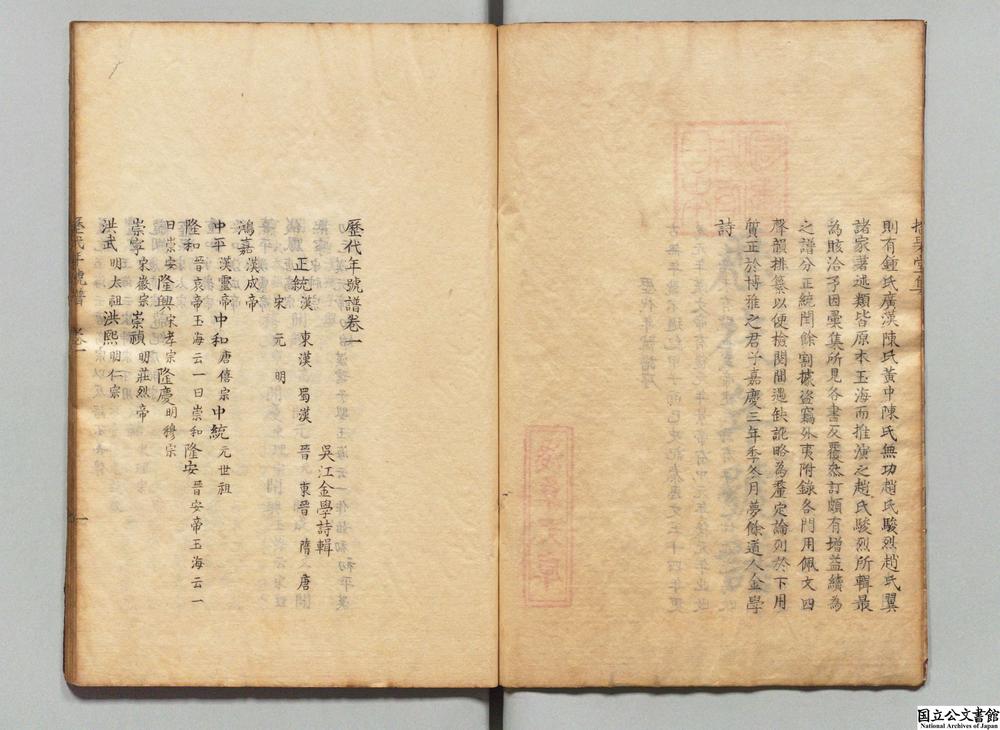 則有鍾氏廣漢陳氏黃中陳氏無功趙氏駿烈趙氏翼
諸家著述類皆原本玉海而推演之趙氏駿烈所輯最
為賅洽予因彙集所見各書反覆叅訂頗有增益續為
之譜分正統閏餘割據盜竊外夷附錄各門用佩文四
聲韻排纂以便檢閱間遇缺訛略為釐定論列於下用
質正於博雅之君子嘉慶三年季冬月夢餘道人金學
詩
歷代年號譜卷一
吳江金學詩輯
正統 漢 東漢 蜀漢 晉 東晉 隋 唐
宋 元 明
鴻嘉 漢成帝
中平 漢靈帝 中和 唐僖宗 中統 元世祖
隆和 晉哀帝玉海云一曰崇和 隆安 晉安帝玉海云一
曰崇安 隆興 宋孝宗 隆慶 明穆宗
崇寧 宋徽宗 崇禎 明莊烈帝
洪武 明太祖 洪熙 明仁宗
歷代年號譜 卷一 一
国立公文書館
National Archives of Japan